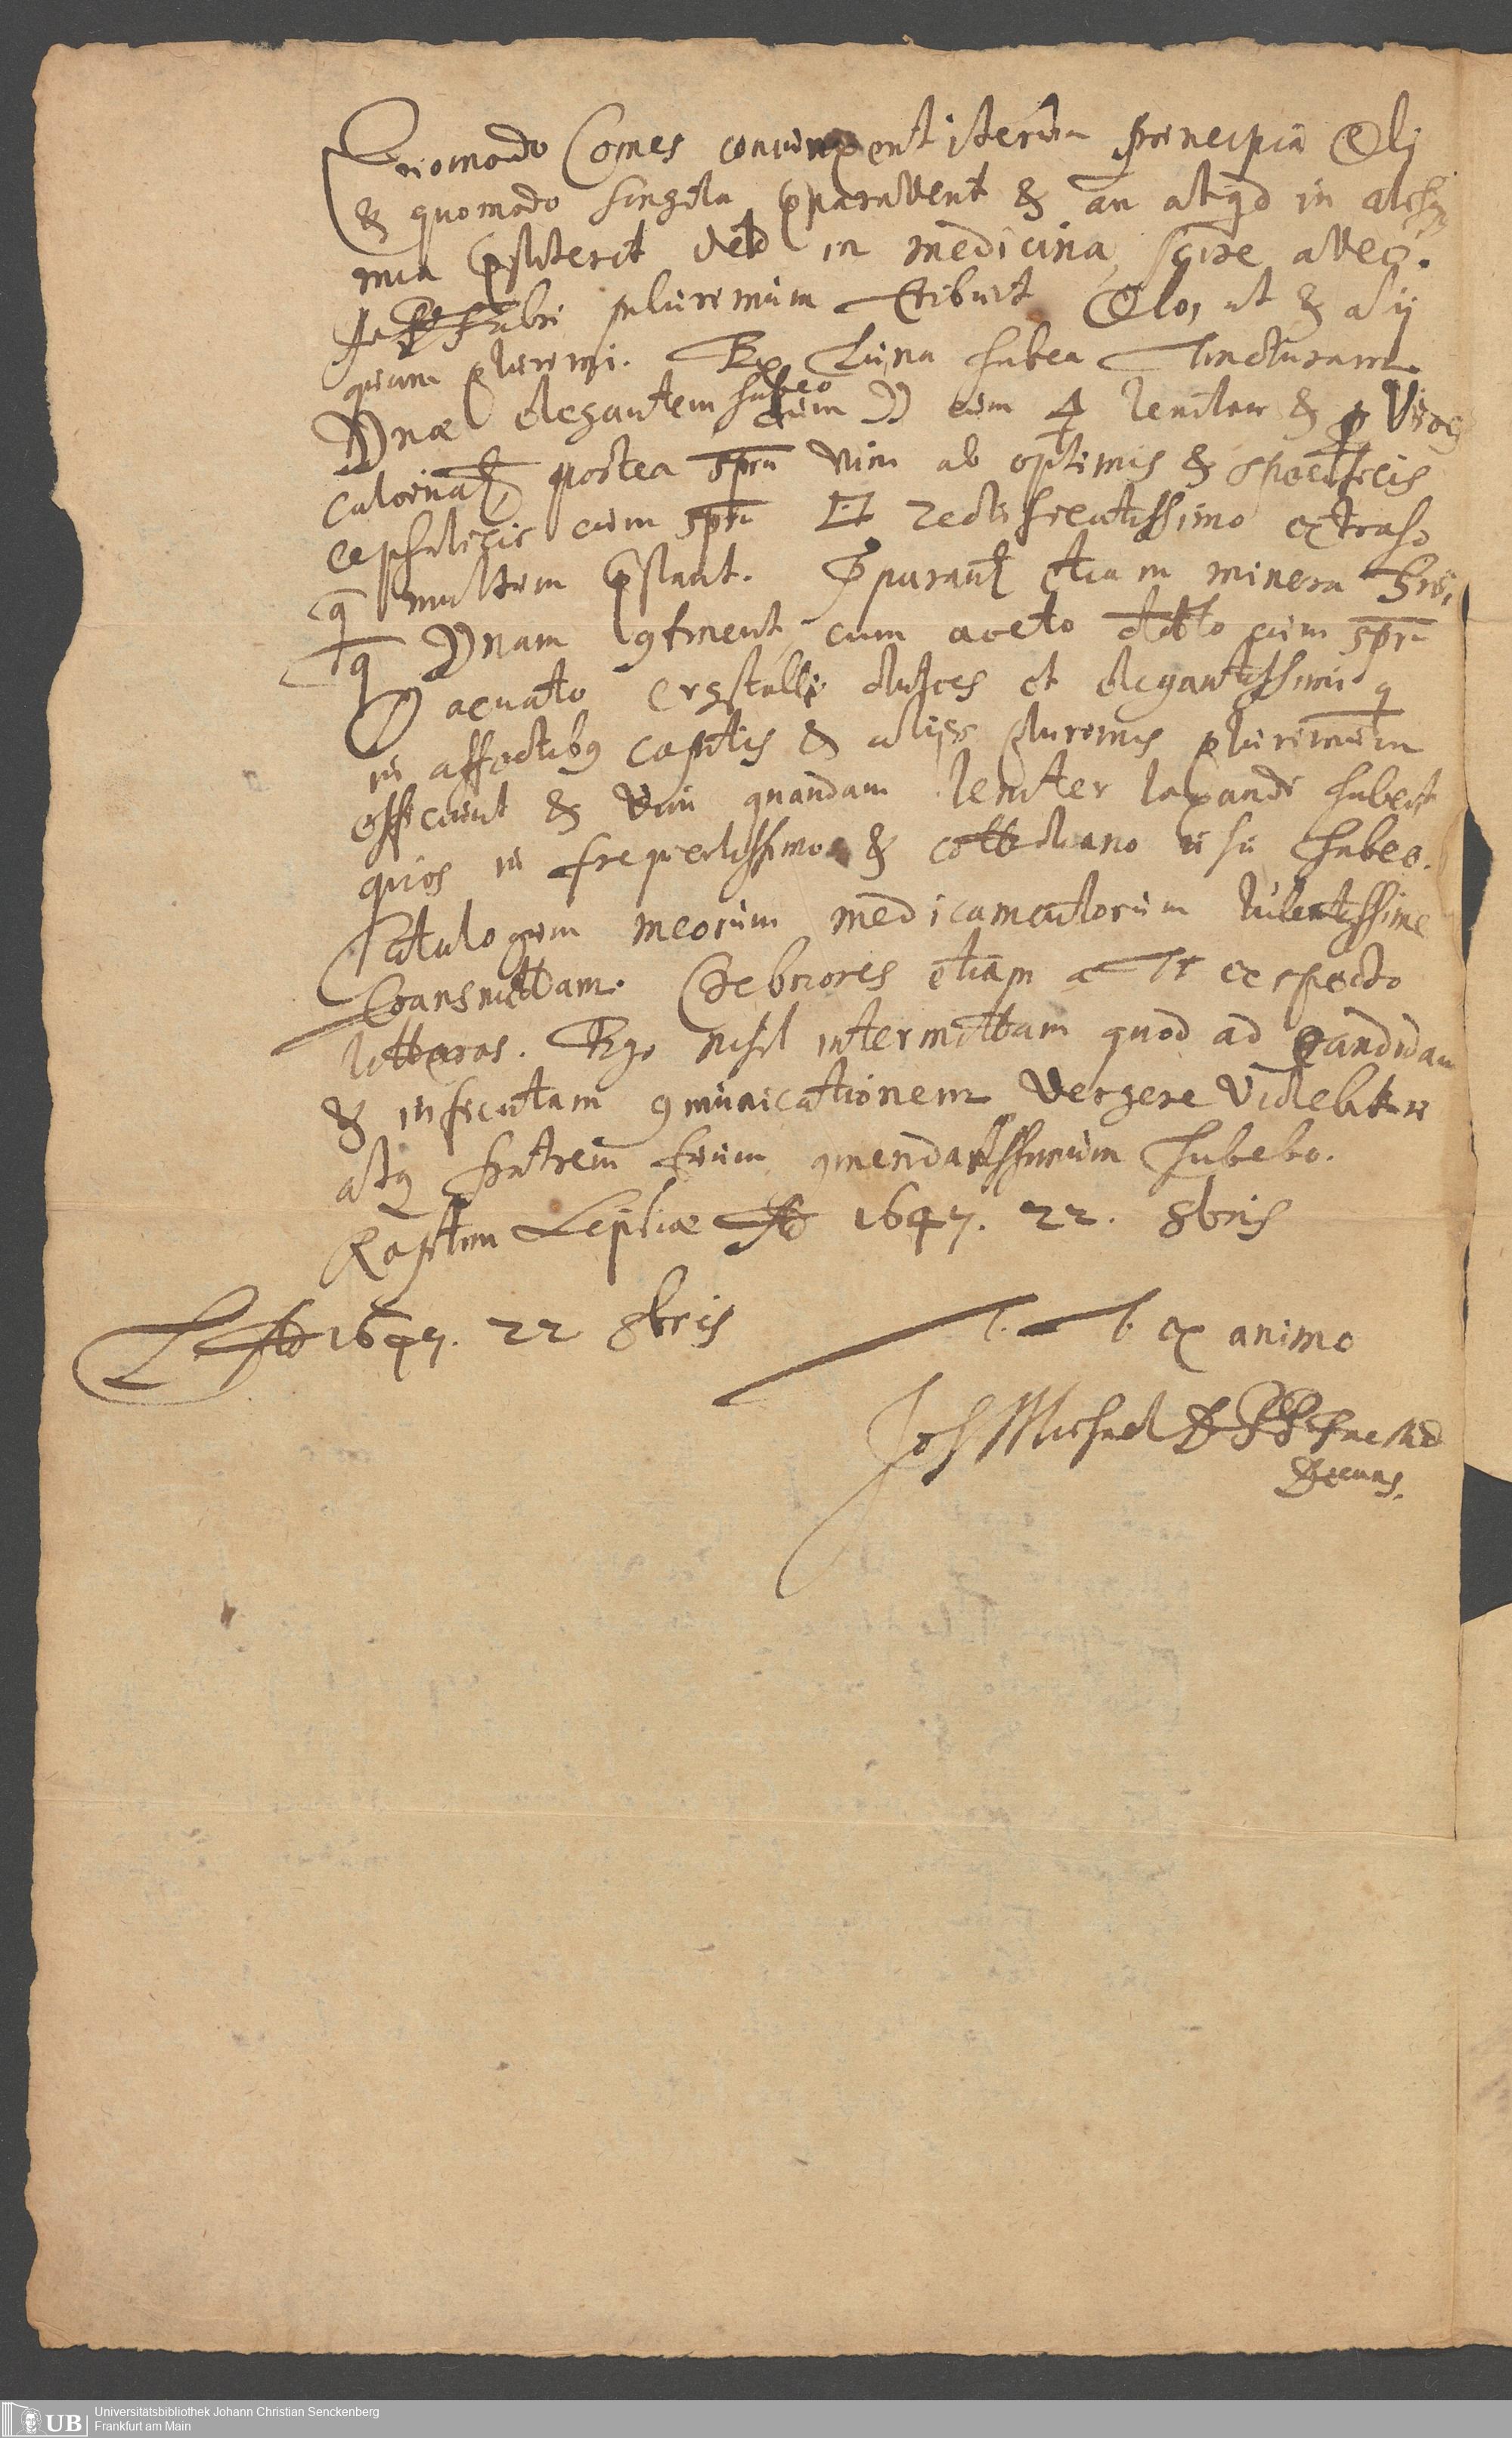 Quomodo Comes coniunxerit iterum principia Oli
& quomodo singula pparaverit & an aliqd in alchy
mia pstiterit vel in medicina, scire aveo.
Fabri plurimum tribuit Olo, ut & alij
quam plurimi. Ex Luna habea Tincturam
☽næ elegantem habeo cum ☽ cum ♃ lenitam &
calcinat, postea spru vini ab optimis & specificis
cephalicis cum spru rectificatissimo extraho
q multum pstant. Pparant etiam minera
q ☽nam 9tinent, cum aceto dldto cum spru
acuato crystalli dulces et elegantissimi q
in affectibg capitis & alijs plurimis plurimum
efficiunt & vim quandam leniter laxandi habent
quos in frequentissimo & cottidiano usu habeo.
Catalogum meorum medicamentorum lubentissime
transmittam. Crebriores etiam a Te exspecto
litteras. Ego nihil intermittam quod ad candidam
& infucatam 9municationem vergere videbitur
atq fratrem tuum 9mendatissimum habebo.
Raptim Lipsiae Ao 1647. 22. 8bris
L. Ao 1647. 22 8bris
T. T. ex animo
Joh Michael D PP Fac Med
Decanus.
UB
Universitätsbibliothek Johann Christian Senckenberg
Frankfurt am Main